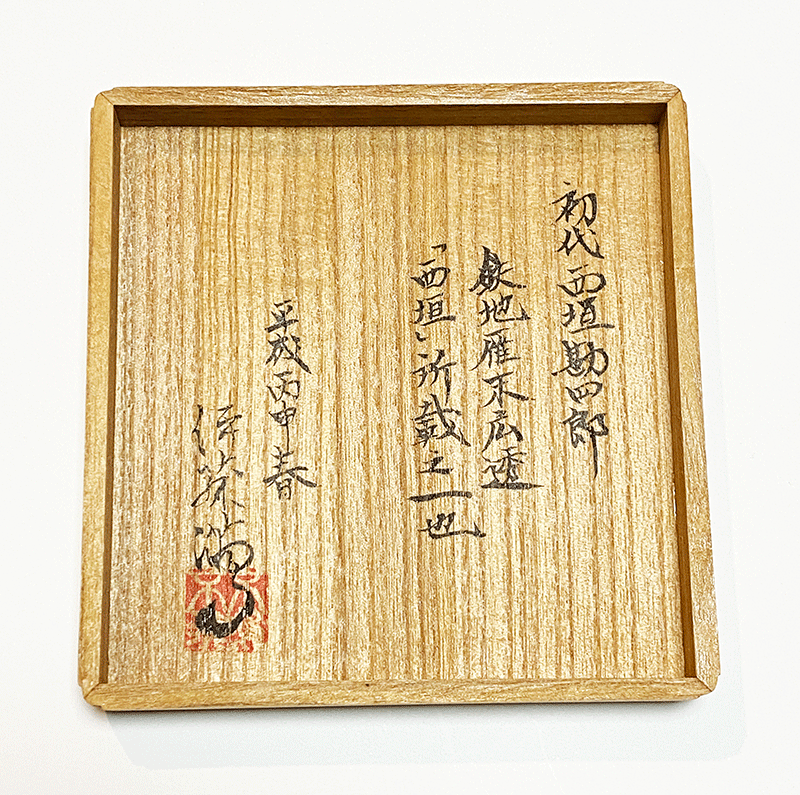 初代 西垣勘四郎
鉄地雁木広透
「西垣」所載之一也
平成丙申春
伊藤満